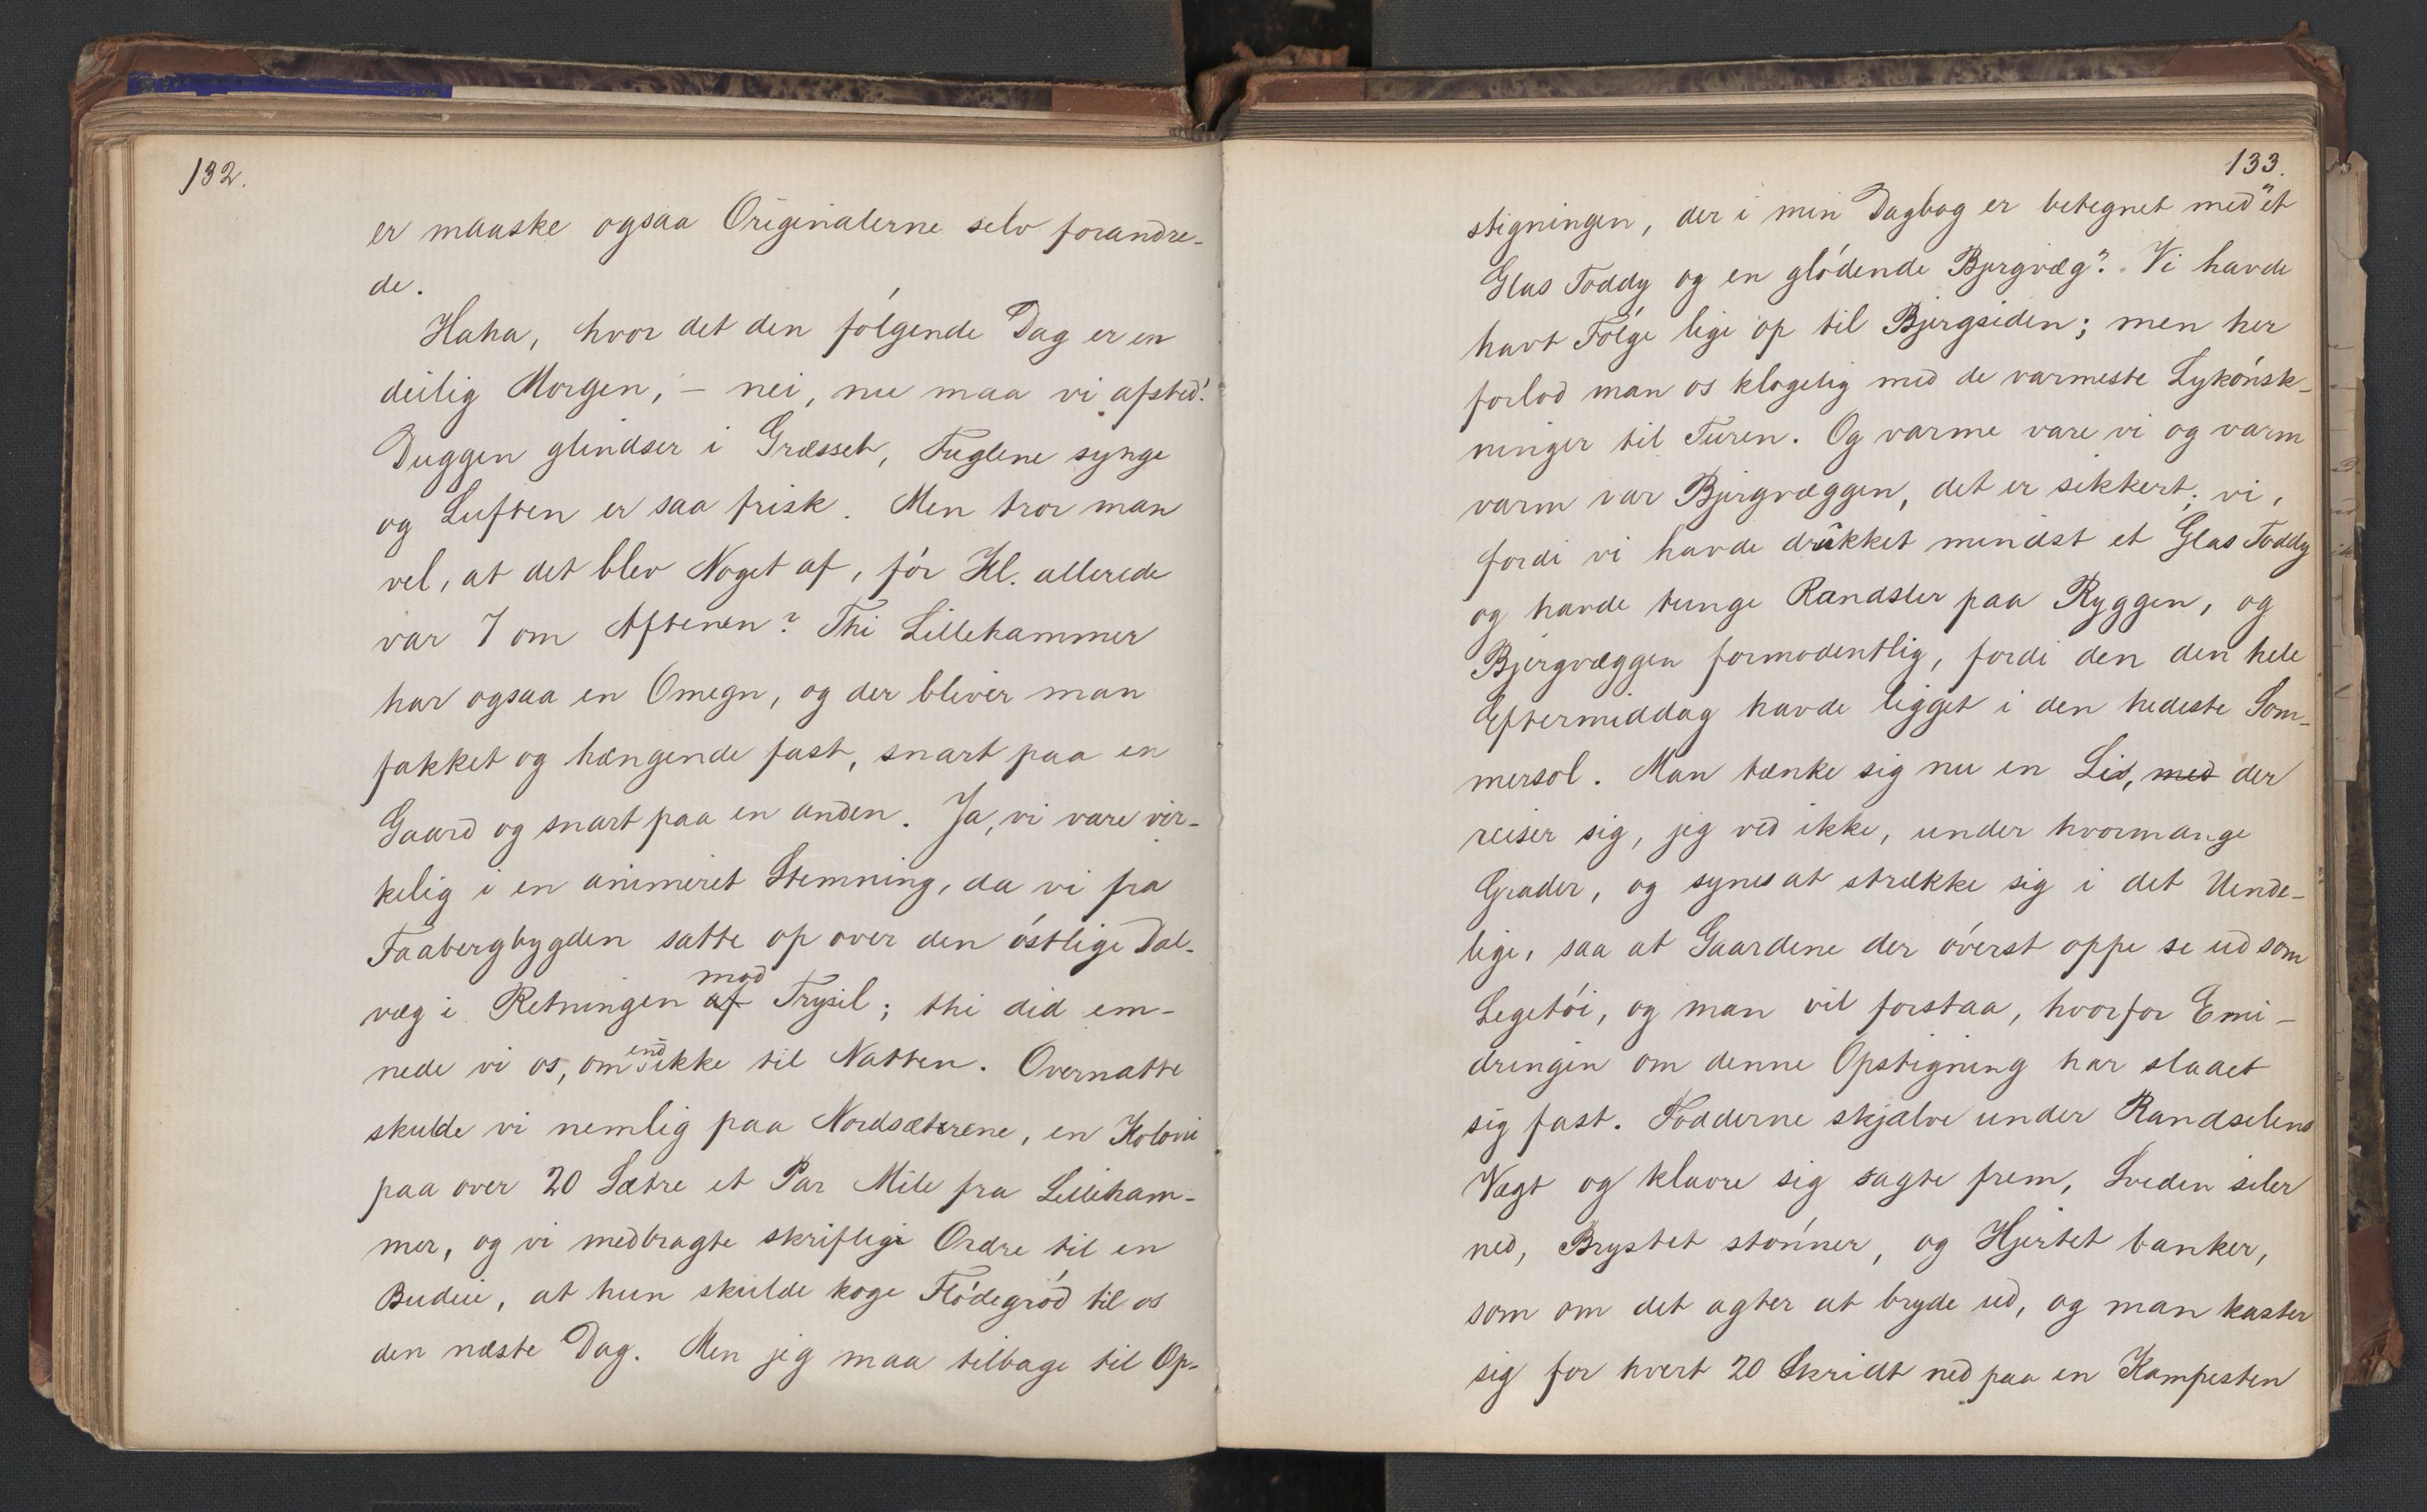 132.
er maaske ogsaa Originalerne selv forandre-
de.
Haha, hvor det den følgende Dag er en
deilig Morgen, – nei, nu maa vi afsted!
Duggen glindser i Græsset, Fuglene synge
og Luften er saa frisk. Men tror man
vel, at det blev Noget af, før Kl. allerede
var 7 om Aftenen? Thi Lillehammer
har ogsaa en Omegn, og der bliver man
fakket og hængende fast, snart paa en
Gaard og snart paa en anden. Ja, vi vare vir-
kelig i en animeret Stemning, da vi fra
Faabergbygden satte op over den østlige Dal-
væg i Retningen af mod Trysil; thi did em-
nede vi os, om end ikke til Natten. Overnatte
skulde vi nemlig paa Nordsæterene, en Koloni
paa over 20 Sætre et Par Mile fra Lilleham-
mer, og vi medbragte skriftlige Ordre til en
Budeie, at hun skulde koge Flødegrød til os
den næste Dag. Men jeg maa tilbage til Op-
133.
stigningen, der i min Dagbog er betegnet med "et
Glas Toddy og en glødende Bjergvæg". Vi havde
havt Følge lige op til Bjergsiden; men her
forlod man os klogelig med de varmeste Lykønsk-
ninger til Turen. Og varme vare vi og varm
varm var Bjergvæggen, det er sikkert; vi,
fordi vi havde drukket mindst et Glas Toddy
og havde tunge Randsler paa Ryggen, og
Bjergvæggen formodentlig, fordi den den hele
Eftermiddag havde ligget i den hedeste Som-
mersol. Man tænke sig nu en Li, med der
reiser sig, jeg ved ikke, under hvormange
Grader, og synes at strække sig i det Uende-
lige, saa at Gaardene der øverst oppe se ud som
Legetøi, og man vil forstaa, hvorfor Emi-
dringen om denne Opstigning har slaaet
sig fast. Fødderne skjælve under Randselens
Vægt og klavre sig sagte frem, Sveden siler
ned, Brystet stønner, og Hjertet banker,
som om det agter at bryde ud, og man kaster
sig for hvert 20 Skridt ned paa en Kampesten